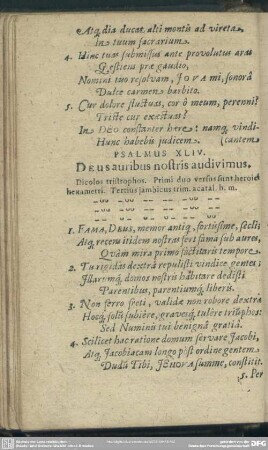 Atq; dia ducat alti montis ad vireta
In tuum sacrarium.
4. Hinc tuas submissus ante provolutus aras
Gestiens præ gaudio,
Nomini tuo resolvam, JOVA mi, sonorâ
Dulce carmen barbito.
5. Cur dolore fluctuas, cor ô meum, perenni?
Triste cur exæstuas?
In DEO constanter hære: namq; vindi-
Hunc habebis judicem. (cantem
PSALMUS XLIV.
DEUS auribus nostris audivimus,
Dicolos tristrophos. Primi duo versus sunt heroici
hexametri. Tertius jambicus trim. acatal. h. m.
1. FAMA, DEUS, memor antiq, fortissime, secli
Atq; recens itidem nostras fert fama sub aures,
Quàm mira primo
2. Tu rigidas dextrâ repulisti vindice gentes;
Illarumq; domos nostris habitare dedisti
Parentibus, parentumq; liberis.
3. Non ferro freti, validæ non robore dextræ
Hocq; solū subiêre, gravesq; tulêre triūphos:
Sed Numinis tui benignâ gratiâ.
4. Scilicet hac ratione domum servare Jacobi,
Atq; Jacobæam longo pòst ordine gentem
Dudū Tibi, JEHOVA summe, constitit.
5. Per